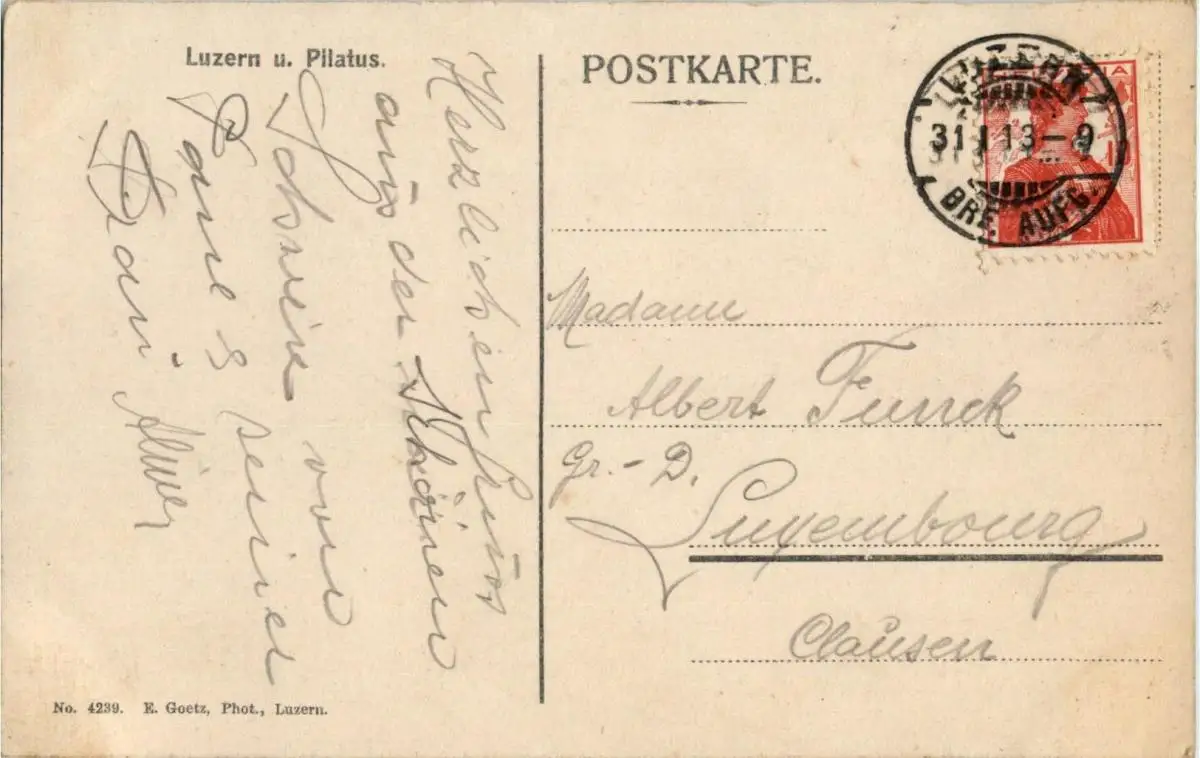 Luzern u. Pilatus.
POSTKARTE.
LUZERN 1
31.I.13–9
BRF. AUFG.
HELVETIA
Herzlichen Gruss
aus der schönen
Schweiz von
Paul &
seiner
Madame
Albert Funck
Gr.-D.
Luxembourg
Clausen
No. 4239. E. Goetz, Phot., Luzern.